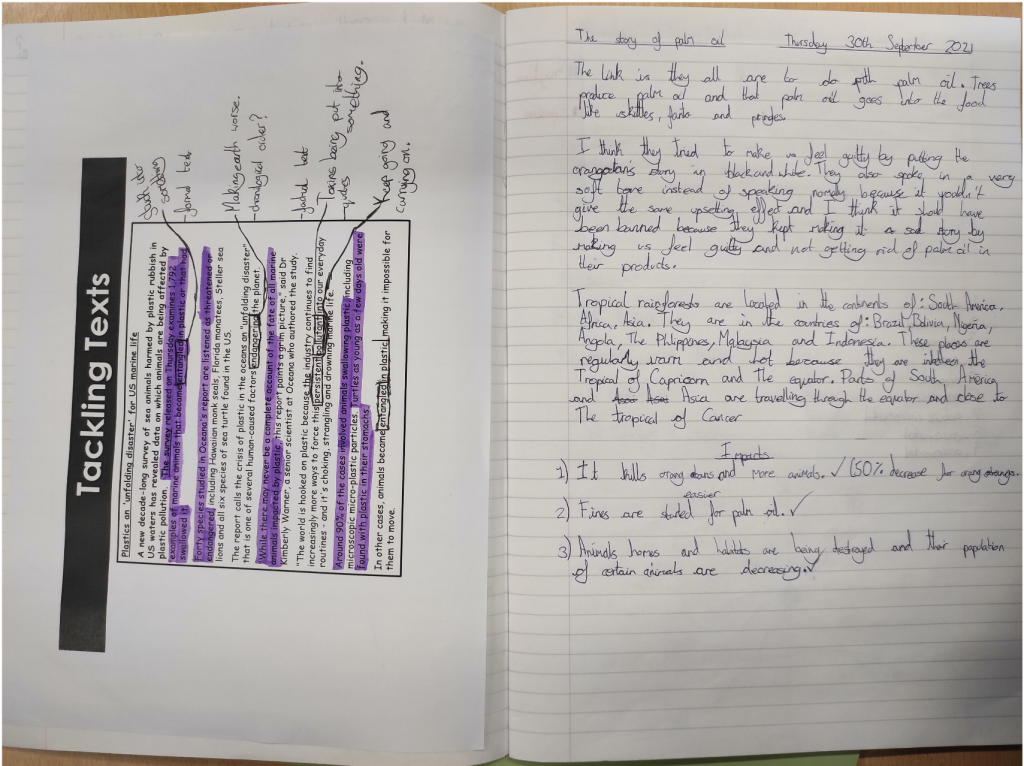 Tackling Texts
Plastics an 'unfolding disaster' for US marine life
A new decade-long survey of sea animals harmed by plastic rubbish in
US waters has revealed data on which animals are being affected by
plastic pollution. The survey released on Thursday examines 1,792
examples of marine animals that became entangled in plastic or that had
swallowed it.
Forty species studied in Oceana's report are listed as threatened or
endangered, including Hawaiian monk seals, Florida manatees, Steller sea
lions and all six species of sea turtle found in the US.
The report calls the crisis of plastic in the oceans an "unfolding disaster"
that is one of several human-caused factors endangering the planet.
"While there may never be a complete account of the fate of all marine
animals impacted by plastic, this report paints a grim picture," said Dr
Kimberly Warner, a senior scientist at Oceana who authored the study.
"The world is hooked on plastic because the industry continues to find
increasingly more ways to force this persistent pollutant into our everyday
routines - and it's choking, strangling and drowning marine life.
Around 90% of the cases involved animals swallowing plastic, including
microscopic micro-plastic particles. Turtles as young as a few days old were
found with plastic in their stomachs.
In other cases, animals became entangled in plastic, making it impossible for
them to move.
something
-formal text
Making earth worse.
-chronological order?
-factual text
Toxins being put into
something.
-quotes
Keep going and
carrying on.
The story of palm oil Thursday 30th September 2021
The link is they all are to do with palm oil. Trees
produce palm oil and that palm oil goes into the food
like skittles, fanta and pringles.
I think they tried to make us feel guilty by putting the
orangotan's story in black and white. They also spoke in a very
soft tone instead of speaking normaly because it wouldn't
give the same upsetting effect and I think it should have
been banned because they kept making it a sad story by
making us feel guilty and not getting rid of palm oil in
their products.
Tropical rainforests are located in the continents of: South America.
Africa. Asia. They are in the countries of: Brazil, Bolivia, Nigeria,
Angola, The Philppines, Malaysia and Indonesia. These places are
regularly warm and hot because they are inbetween the
Tropical of Capricorn and The equator. Parts of South America
and Asia are travelling through the equator and close to
The tropical of Cancer
Impacts
1) It kills orangutans and more animals. ✓ (50% decrease for orangutangs.
easier
2) Fires are started for palm oil. ✓
3) Animals homes and habitats are being destroyed and their population
of certain animals are decreasing. ✓